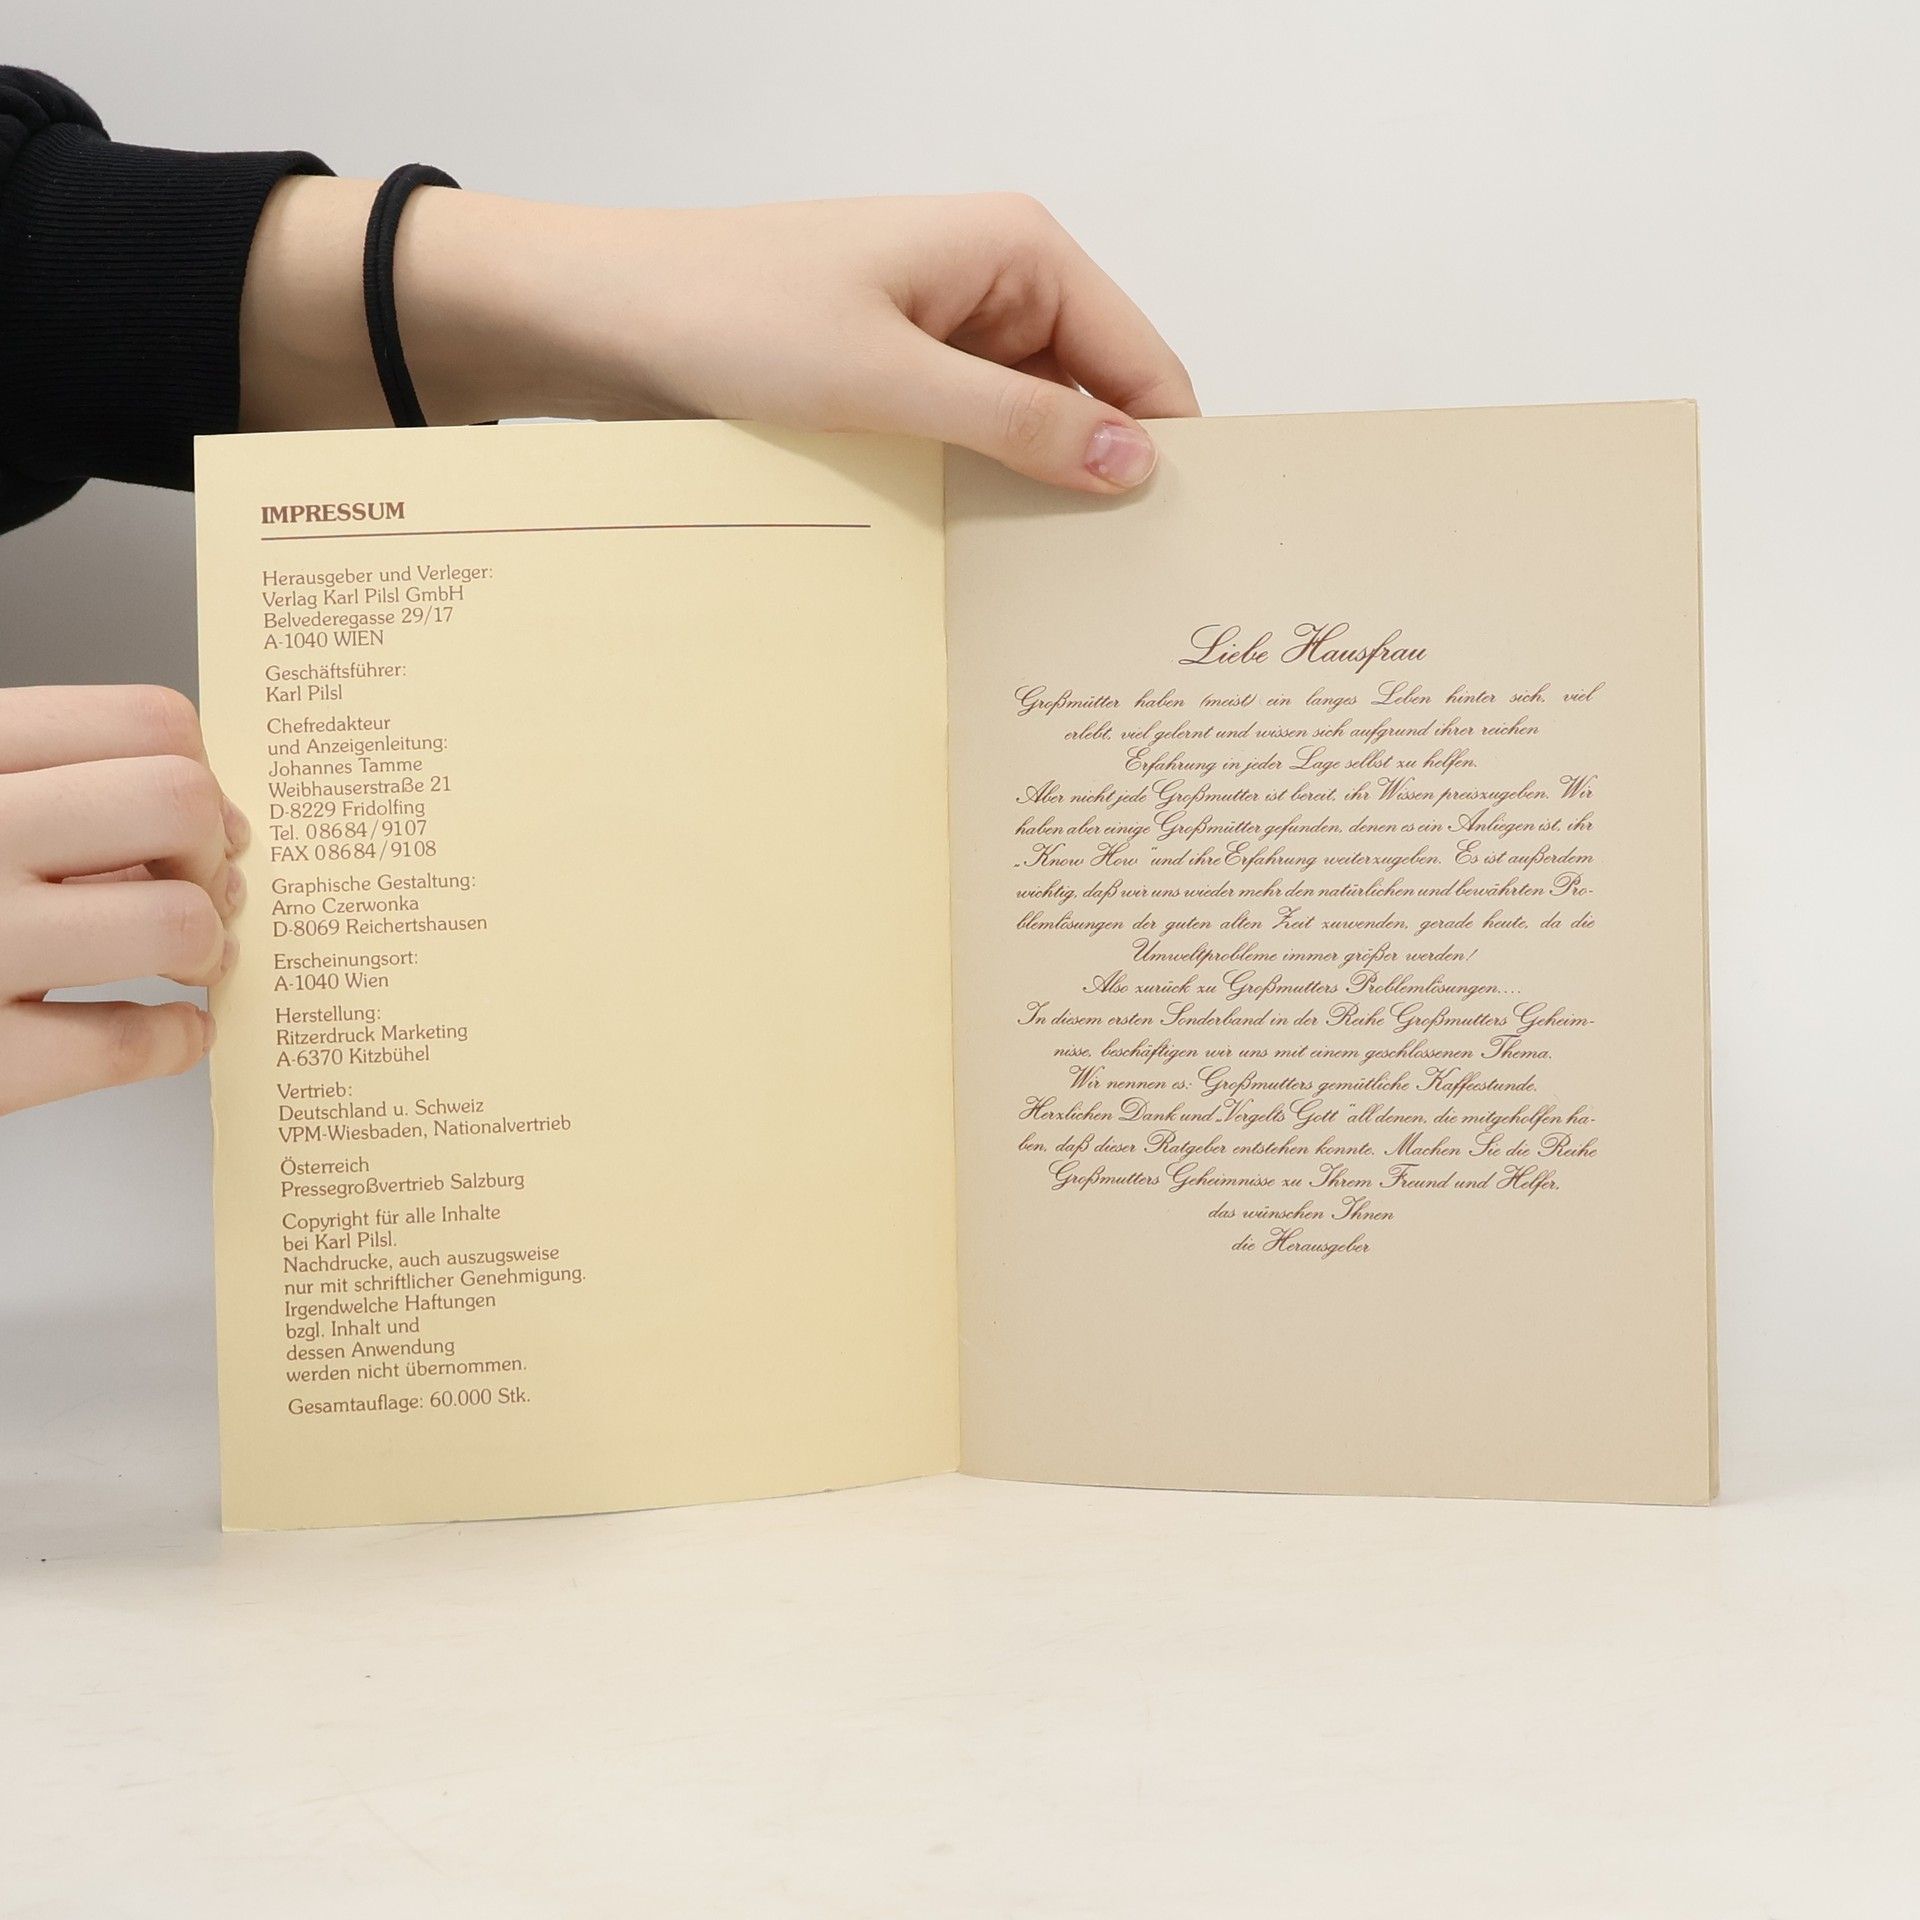 IMPRESSUM
Herausgeber und Verleger:
Verlag Karl Pilsl GmbH
Belvederegasse 29/17
A-1040 WIEN
Geschäftsführer:
Karl Pilsl
Chefredakteur
und Anzeigenleitung:
Johannes Tamme
Weibhauserstraße 21
D-8229 Fridolfing
Tel. 08684/9107
FAX 08684/9108
Graphische Gestaltung:
Arno Czerwonka
D-8069 Reichertshausen
Erscheinungsort:
A-1040 Wien
Herstellung:
Ritzerdruck Marketing
A-6370 Kitzbühel
Vertrieb:
Deutschland u. Schweiz
VPM-Wiesbaden, Nationalvertrieb
Österreich
Pressegroßvertrieb Salzburg
Copyright für alle Inhalte
bei Karl Pilsl.
Nachdrucke, auch auszugsweise
nur mit schriftlicher Genehmigung.
Irgendwelche Haftungen
bzgl. Inhalt und
dessen Anwendung
werden nicht übernommen.
Gesamtauflage: 60.000 Stk.
Liebe Hausfrau
Großmütter haben (meist) ein langes Leben hinter sich, viel
erlebt, viel gelernt und wissen sich aufgrund ihrer reichen
Erfahrung in jeder Lage selbst zu helfen.
Aber nicht jede Großmutter ist bereit, ihr Wissen preiszugeben. Wir
haben aber einige Großmütter gefunden, denen es ein Anliegen ist, ihr
„Know How" und ihre Erfahrung weiterzugeben. Es ist außerdem
wichtig, daß wir uns wieder mehr den natürlichen und bewährten Pro-
blemlösungen der guten alten Zeit zuwenden, gerade heute, da die
Umweltprobleme immer größer werden!
Also zurück zu Großmutters Problemlösungen....
In diesem ersten Sonderband in der Reihe Großmutters Geheim-
nisse, beschäftigen wir uns mit einem geschlossenen Thema.
Wir nennen es: Großmutters gemütliche Kaffeestunde.
Herzlichen Dank und „Vergelts Gott" all denen, die mitgeholfen ha-
ben, daß dieser Ratgeber entstehen konnte. Machen Sie die Reihe
Großmutters Geheimnisse zu Ihrem Freund und Helfer,
das wünschen Ihnen
die Herausgeber